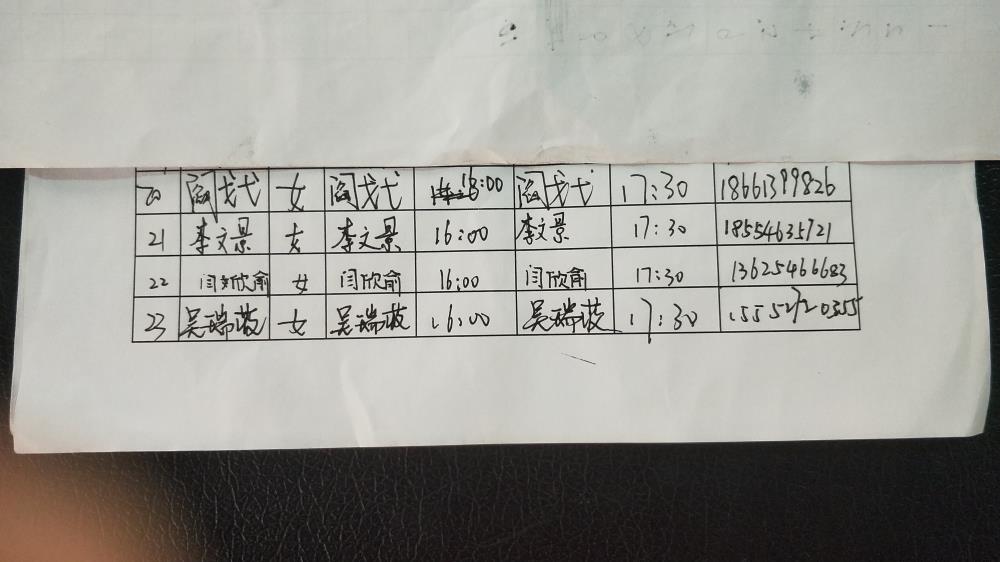 20 阎戈弋 女 阎戈弋 16:00 阎戈弋 17:30 18661399826
21 李文景 女 李文景 16:00 李文景 17:30 18554635721
22 闫欣俞 女 闫欣俞 16:00 闫欣俞 17:30 13625466683
23 吴瑞 女 吴瑞 16:00 吴瑞 17:30